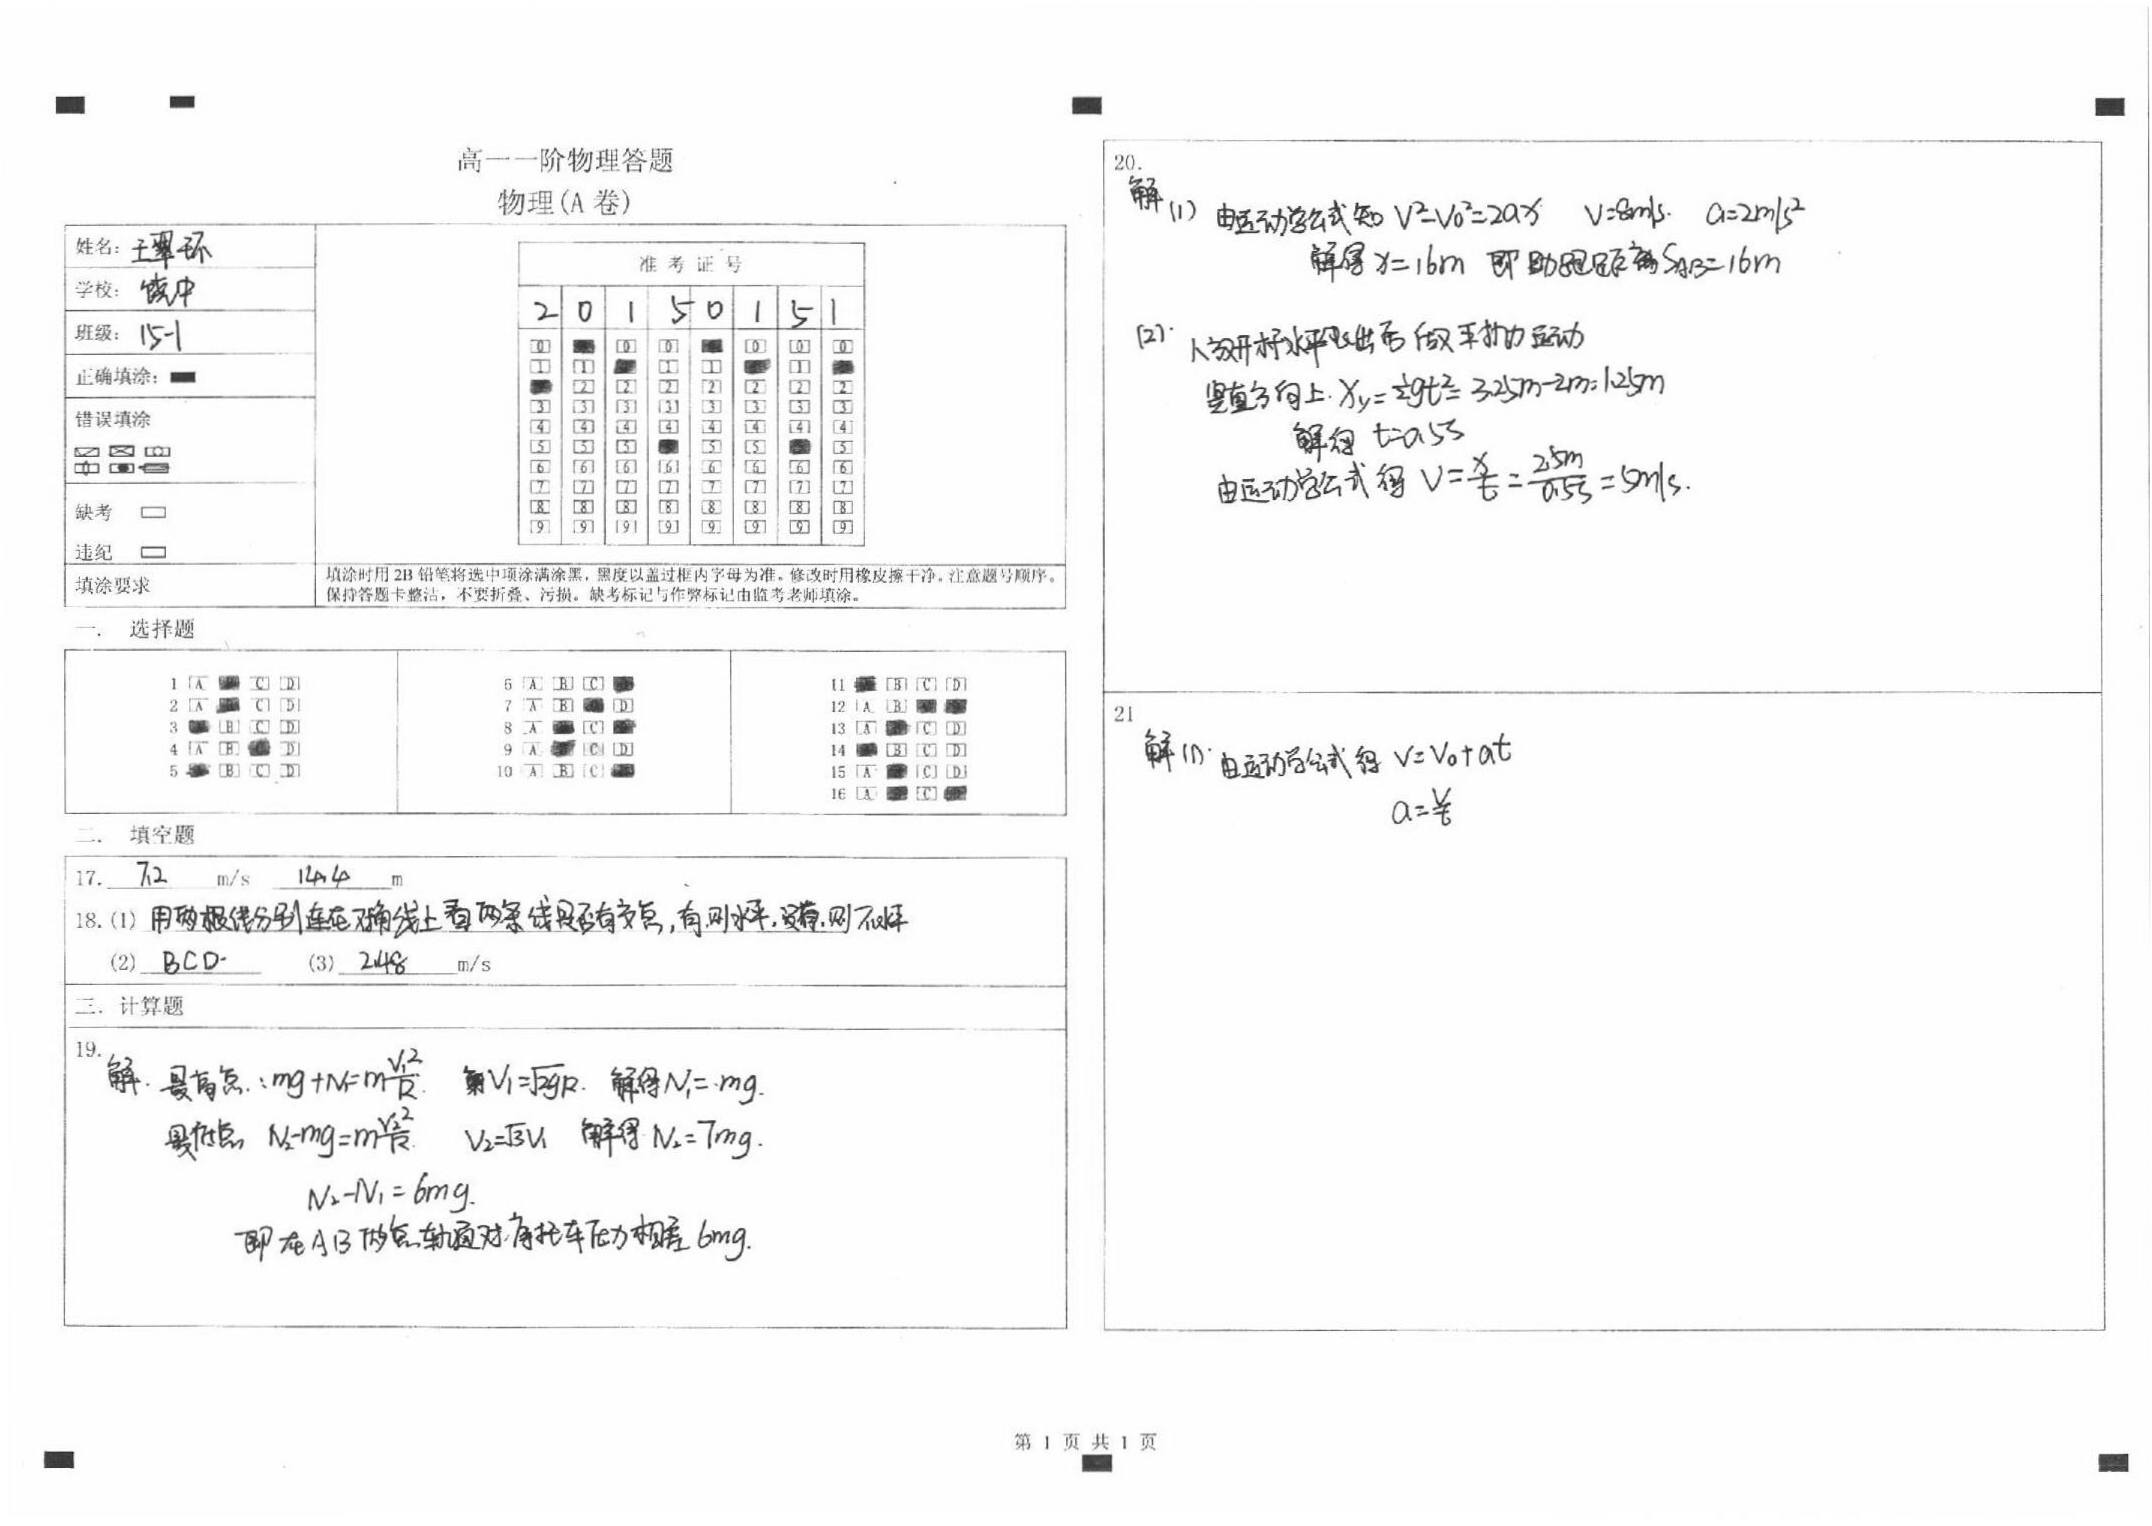 高一一阶物理答题
物理(A 卷)
姓名: 王翠环
学校: 饶中
班级: 15-1
正确填涂:
错误填涂
缺考
违纪
填涂要求
准 考 证 号
2 0 1 5 0 1 5 1
[0] [0] [0] [0] [0] [0]
[1] [1] [1] [1] [1]
[2] [2] [2] [2] [2] [2] [2]
[3] [3] [3] [3] [3] [3] [3] [3]
[4] [4] [4] [4] [4] [4] [4] [4]
[5] [5] [5] [5] [5] [5]
[6] [6] [6] [6] [6] [6] [6] [6]
[7] [7] [7] [7] [7] [7] [7] [7]
[8] [8] [8] [8] [8] [8] [8] [8]
[9] [9] [9] [9] [9] [9] [9] [9]
填涂时用 2B 铅笔将选中项涂满涂黑，黑度以盖过框内字母为准。修改时用橡皮擦干净。注意题号顺序。
保持答题卡整洁，不要折叠、污损。缺考标记与作弊标记由监考老师填涂。
一. 选择题
1 [A] [C] [D]
2 [A] [C] [D]
3 [B] [C] [D]
4 [A] [B] [D]
5 [B] [C] [D]
6 [A] [B] [C]
7 [A] [B] [D]
8 [A] [C]
9 [A] [C] [D]
10 [A] [B] [C]
11 [B] [C] [D]
12 [A] [B]
13 [A] [C] [D]
14 [B] [C] [D]
15 [A] [C] [D]
16 [A] [C]
二. 填空题
17. 7.2 m/s 14.4 m
18. (1) 用两根线分别连在对角线上看两条线是否有交点,有则水平,没有,则不水平
(2) BCD. (3) 2.48 m/s
三. 计算题
19.
解. 最高点:mg+N₁=m\frac{V₁²}{R}. V₁=√2gR. 解得N₁=mg.
最低点 N₂-mg=m\frac{V₂²}{R}. V₂=√3V₁ 解得 N₂=7mg.
N₂-N₁=6mg.
即在AB两点轨道对摩托车压力相差6mg.
20.
解(1) 由运动学公式知 V²-V₀²=2ax V=8m/s. a=2m/s²
解得x=16m 即助跑距离S_{AB}=16m
(2). 人放开杆水平飞出后做平抛运动
竖直方向上. x_y=½gt²=3.25m-2m=1.25m
解得 t=0.5s
由运动学公式得 V=\frac{x}{t}=\frac{2.5m}{0.5s}=5m/s.
21
解(1). 由运动学公式得 V=V₀+at
a=\frac{V}{t}
第 1 页 共 1 页